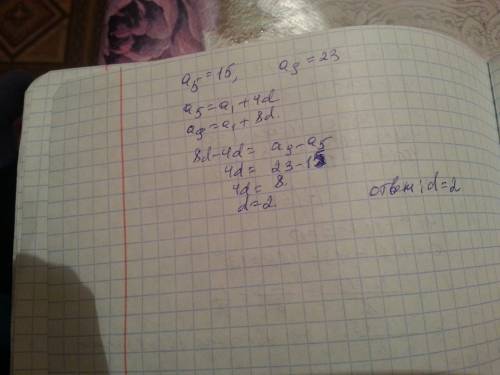 a₅ = 15, a₉ = 23
a₅ = a₁ + 4d
a₉ = a₁ + 8d.
8d - 4d = a₉ - a₅
4d = 23 - 15
4d = 8.
d = 2.
ответ: d = 2